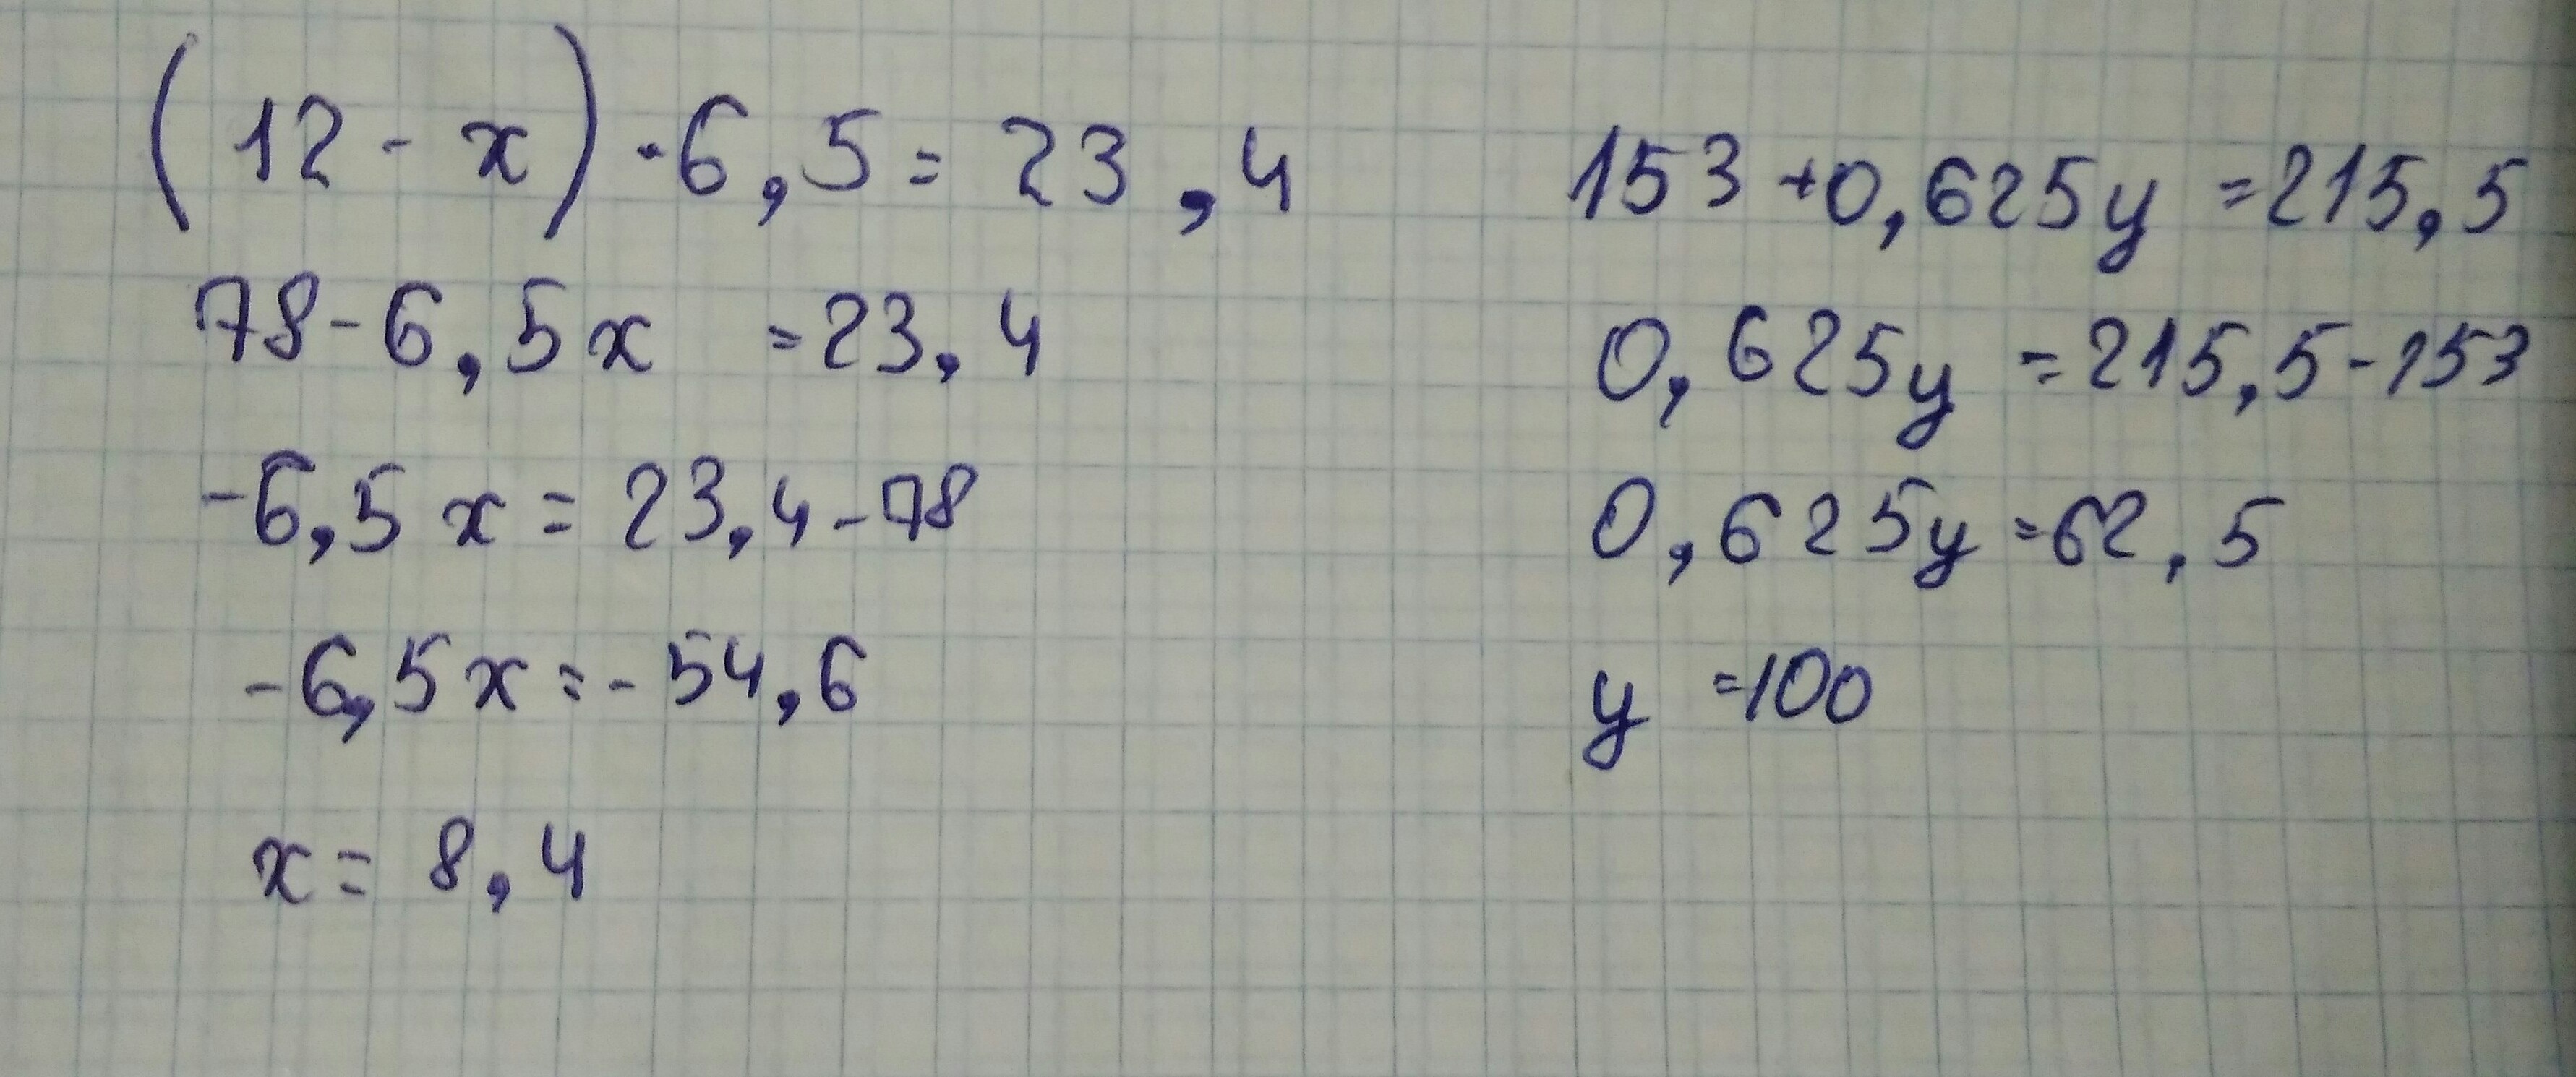 (12 - x) · 6,5 = 23,4
78 - 6,5x = 23,4
-6,5x = 23,4 - 78
-6,5x = -54,6
x = 8,4
153 + 0,625y = 215,5
0,625y = 215,5 - 153
0,625y = 62,5
y = 100